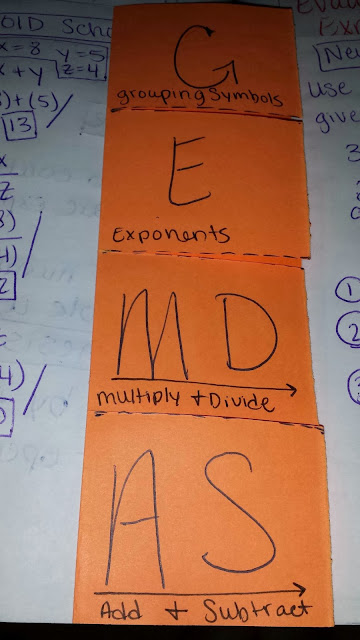 OID Scho
x=8 y=5
x + y z=4
)+(5)/
13
x
z
8)
4)
2
4)/
G
grouping Symbols
E
Exponents
M D
multiply + Divide
A S
Add + Subtract
Evalu
Ex
Ne
use
give
3
1
2
3